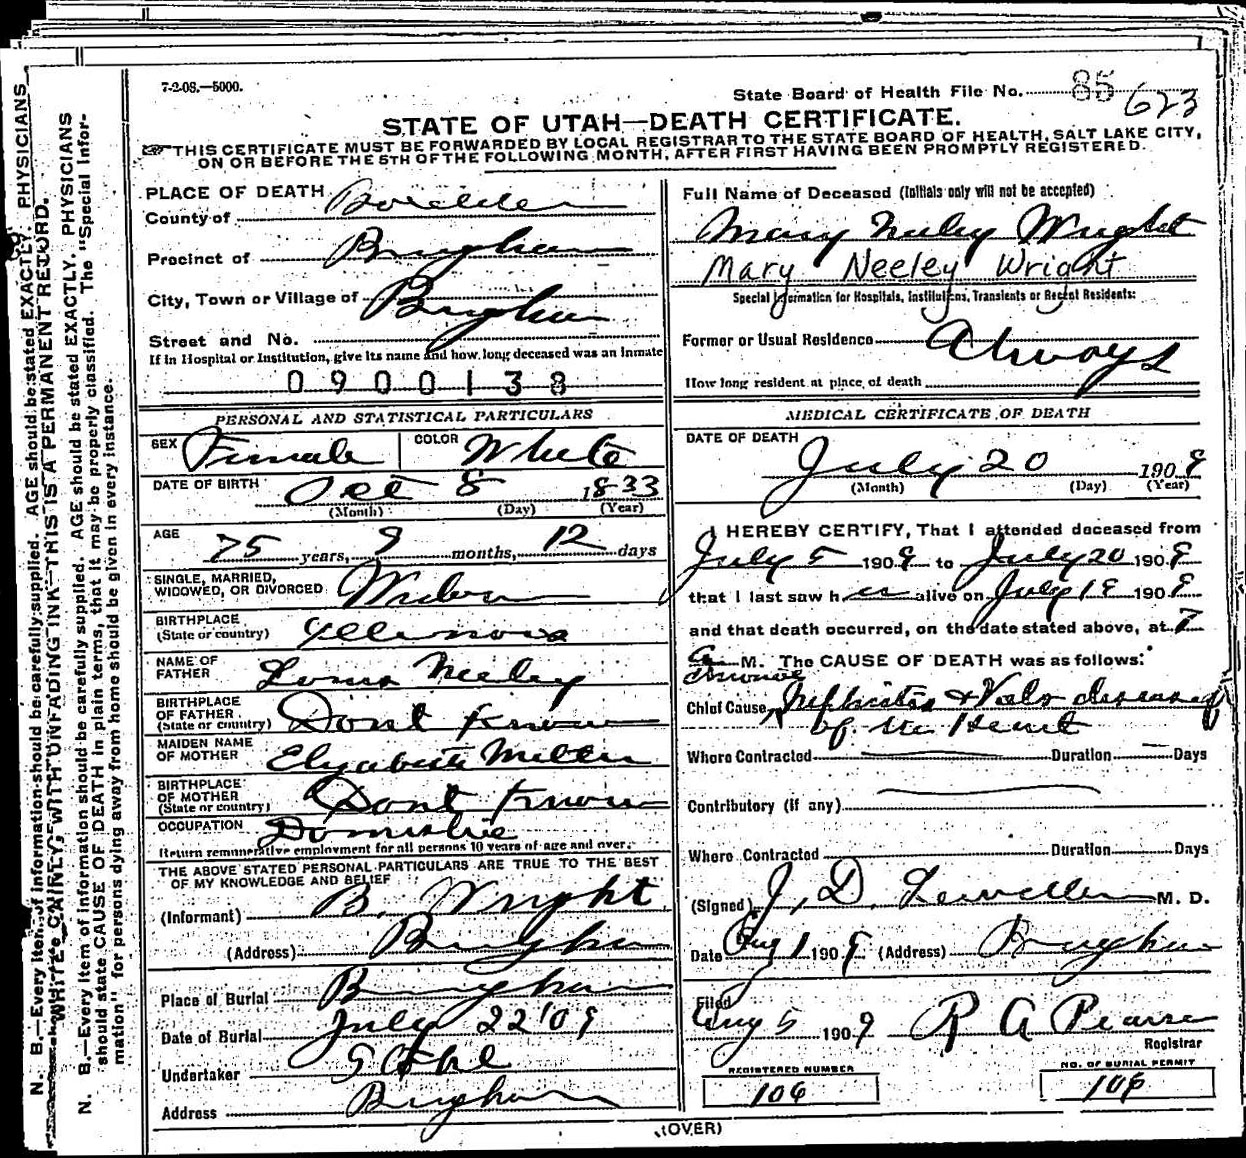 7-2-08.—5000.
State Board of Health File No. 85 623
STATE OF UTAH—DEATH CERTIFICATE.
THIS CERTIFICATE MUST BE FORWARDED BY LOCAL REGISTRAR TO THE STATE BOARD OF HEALTH, SALT LAKE CITY,
ON OR BEFORE THE 5TH OF THE FOLLOWING MONTH, AFTER FIRST HAVING BEEN PROMPTLY REGISTERED.
PLACE OF DEATH
County of Boxelder
Precinct of Brigham
City, Town or Village of Brigham
Street and No.
If in Hospital or Institution, give its name and how long deceased was an inmate
0900138
PERSONAL AND STATISTICAL PARTICULARS
SEX Female COLOR White
DATE OF BIRTH Oct 8 1833
(Month) (Day) (Year)
AGE 75 years, 9 months, 12 days
SINGLE, MARRIED,
WIDOWED, OR DIVORCED Widow
BIRTHPLACE
(State or country) Illinois
NAME OF
FATHER Louis Neeley
BIRTHPLACE
OF FATHER
(State or country) Dont Know
MAIDEN NAME
OF MOTHER Elizabeth Miller
BIRTHPLACE
OF MOTHER
(State or country) Dont Know
OCCUPATION Domestic
Return remunerative employment for all persons 10 years of age and over.
THE ABOVE STATED PERSONAL PARTICULARS ARE TRUE TO THE BEST
OF MY KNOWLEDGE AND BELIEF
(Informant) B. Wright
(Address) Brigham
Place of Burial Brigham
Date of Burial July 22 '09
Undertaker
Address Brigham
Full Name of Deceased (Initials only will not be accepted)
Mary Neeley Wright
Mary Neeley Wright
Special Information for Hospitals, Institutions, Transients or Recent Residents:
Former or Usual Residence Always
How long resident at place of death
MEDICAL CERTIFICATE OF DEATH
DATE OF DEATH
July 20 1909
(Month) (Day) (Year)
I HEREBY CERTIFY, That I attended deceased from
July 5 1909 to July 20 1909
that I last saw her alive on July 19 1909
and that death occurred, on the date stated above, at 7
a M. The CAUSE OF DEATH was as follows:
Chronic
Chief Cause Nephritis & Valv disease of
of the Heart
Where Contracted Duration Days
Contributory (if any)
Where Contracted Duration Days
(Signed) J. D. M. D.
Date Aug 1 1909 (Address) Brigham
Filed
Aug 5 1909 R A Pearse
Registrar
REGISTERED NUMBER
106
NO. OF BURIAL PERMIT
106
(OVER)
N. B.—Every item of information should be carefully supplied. AGE should be stated EXACTLY. PHYSICIANS
WRITE PLAINLY, WITH UNFADING INK—THIS IS A PERMANENT RECORD.
N. B.—Every item of information should be carefully supplied. AGE should be stated EXACTLY. PHYSICIANS
should state CAUSE OF DEATH in plain terms, that it may be properly classified. The "Special Infor-
mation" for persons dying away from home should be given in every instance.